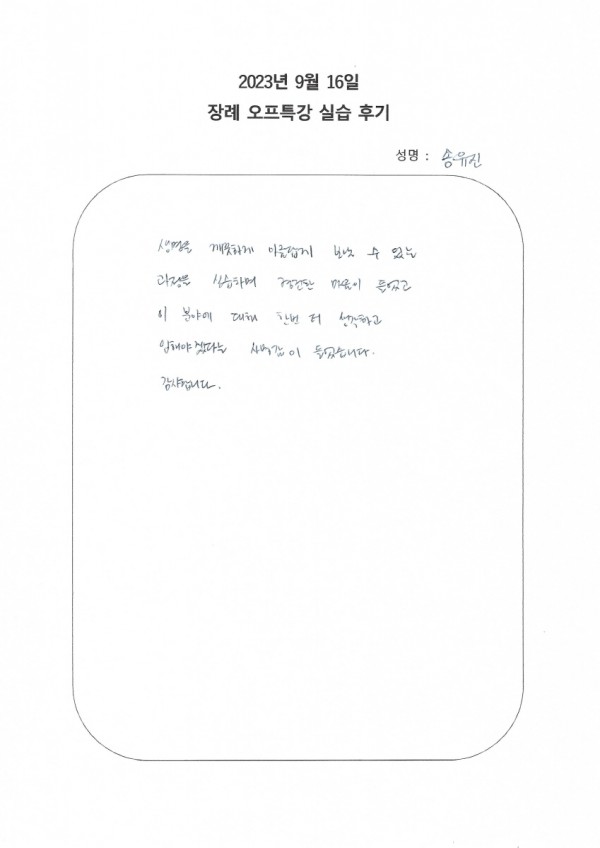 2023년 9월 16일
장례 오프특강 실습 후기
성명 : 송유진
생명을 깨끗하게 아름답게 보낼 수 있는
과정을 실습하며 경건한 마음이 들었고
이 분야에 대해 한번 더 생각하고
임해야겠다는 사명감이 들었습니다.
감사합니다.